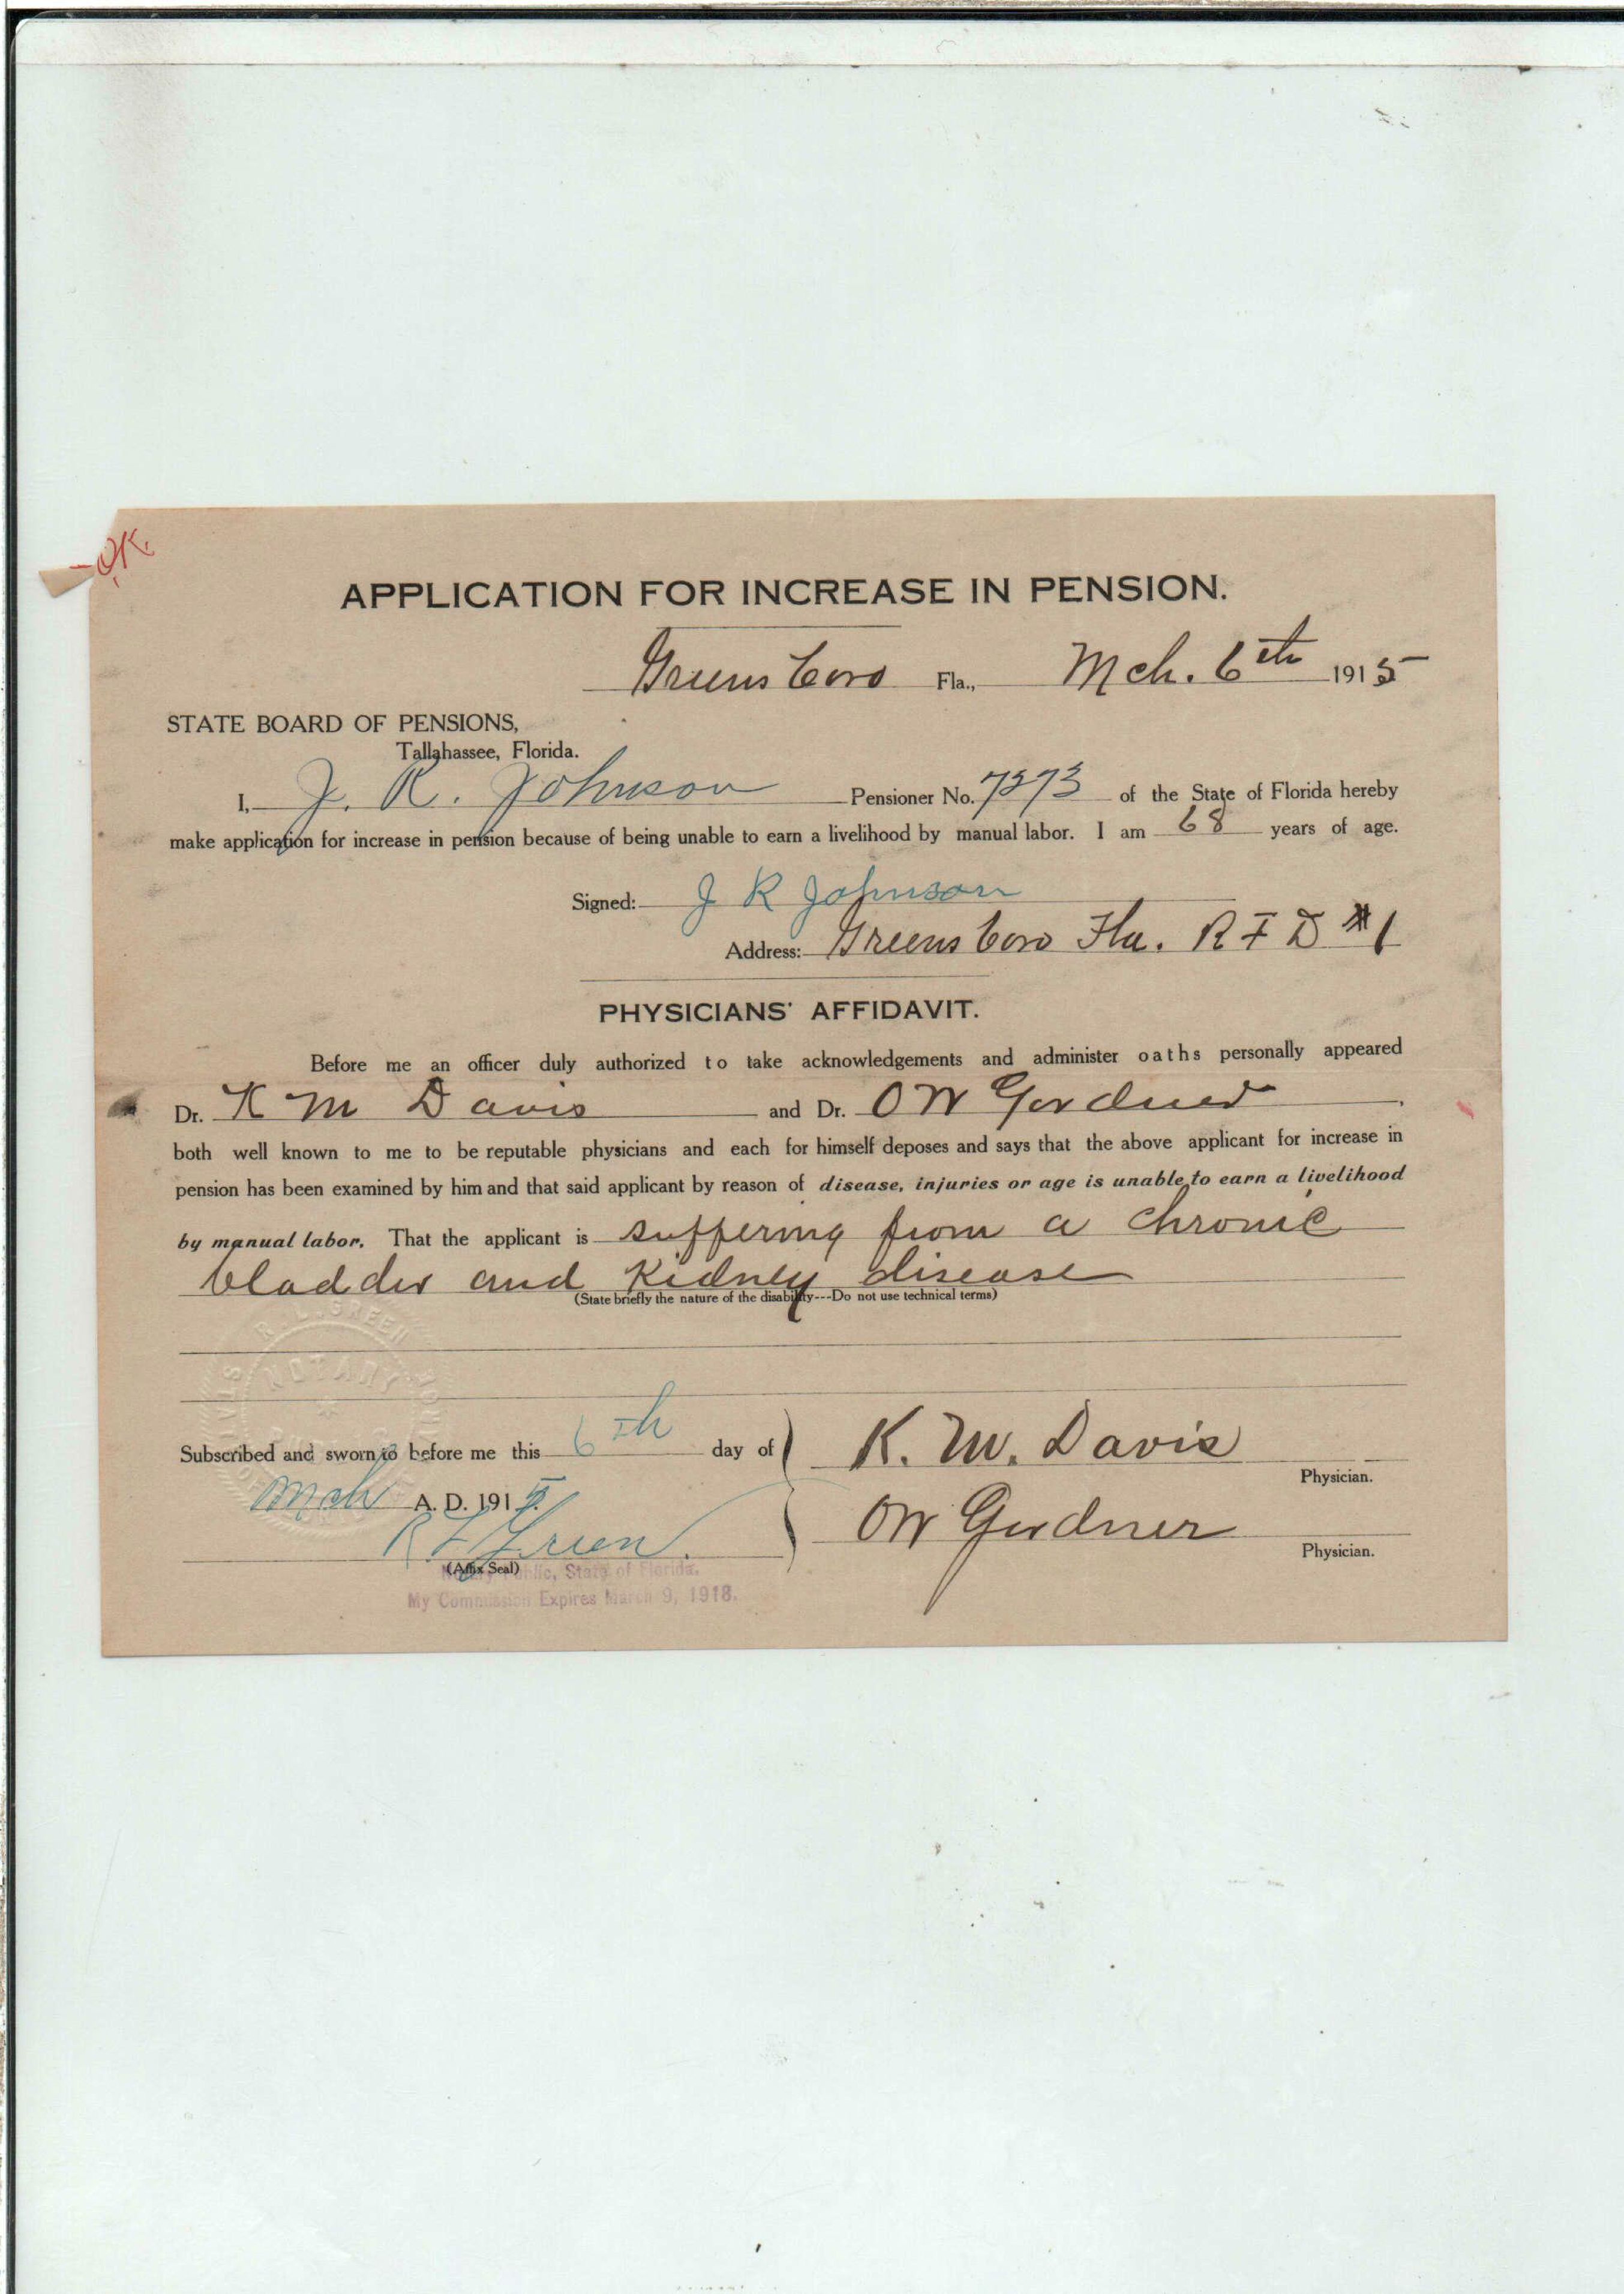 O.K.
APPLICATION FOR INCREASE IN PENSION.
Greensboro Fla., Mch. 6th 1915
STATE BOARD OF PENSIONS,
Tallahassee, Florida.
I, J. R. Johnson Pensioner No. 7373 of the State of Florida hereby
make application for increase in pension because of being unable to earn a livelihood by manual labor. I am 68 years of age.
Signed: J R Johnson
Address: Greensboro Fla. R F D #1
PHYSICIANS' AFFIDAVIT.
Before me an officer duly authorized to take acknowledgements and administer oaths personally appeared
Dr. K M Davis and Dr. O W Gordner.
both well known to me to be reputable physicians and each for himself deposes and says that the above applicant for increase in
pension has been examined by him and that said applicant by reason of disease, injuries or age is unable to earn a livelihood
by manual labor. That the applicant is suffering from a chronic
bladder and Kidney disease
(State briefly the nature of the disability---Do not use technical terms)
R. L. GREEN
NOTARY
Subscribed and sworn to before me this 6th day of
Mch A. D. 1915.
K. M. Davis
Physician.
R L Green.
O W Gordner
Physician.
(Affix Seal)
Notary Public, State of Florida.
My Commission Expires March 9, 1918.